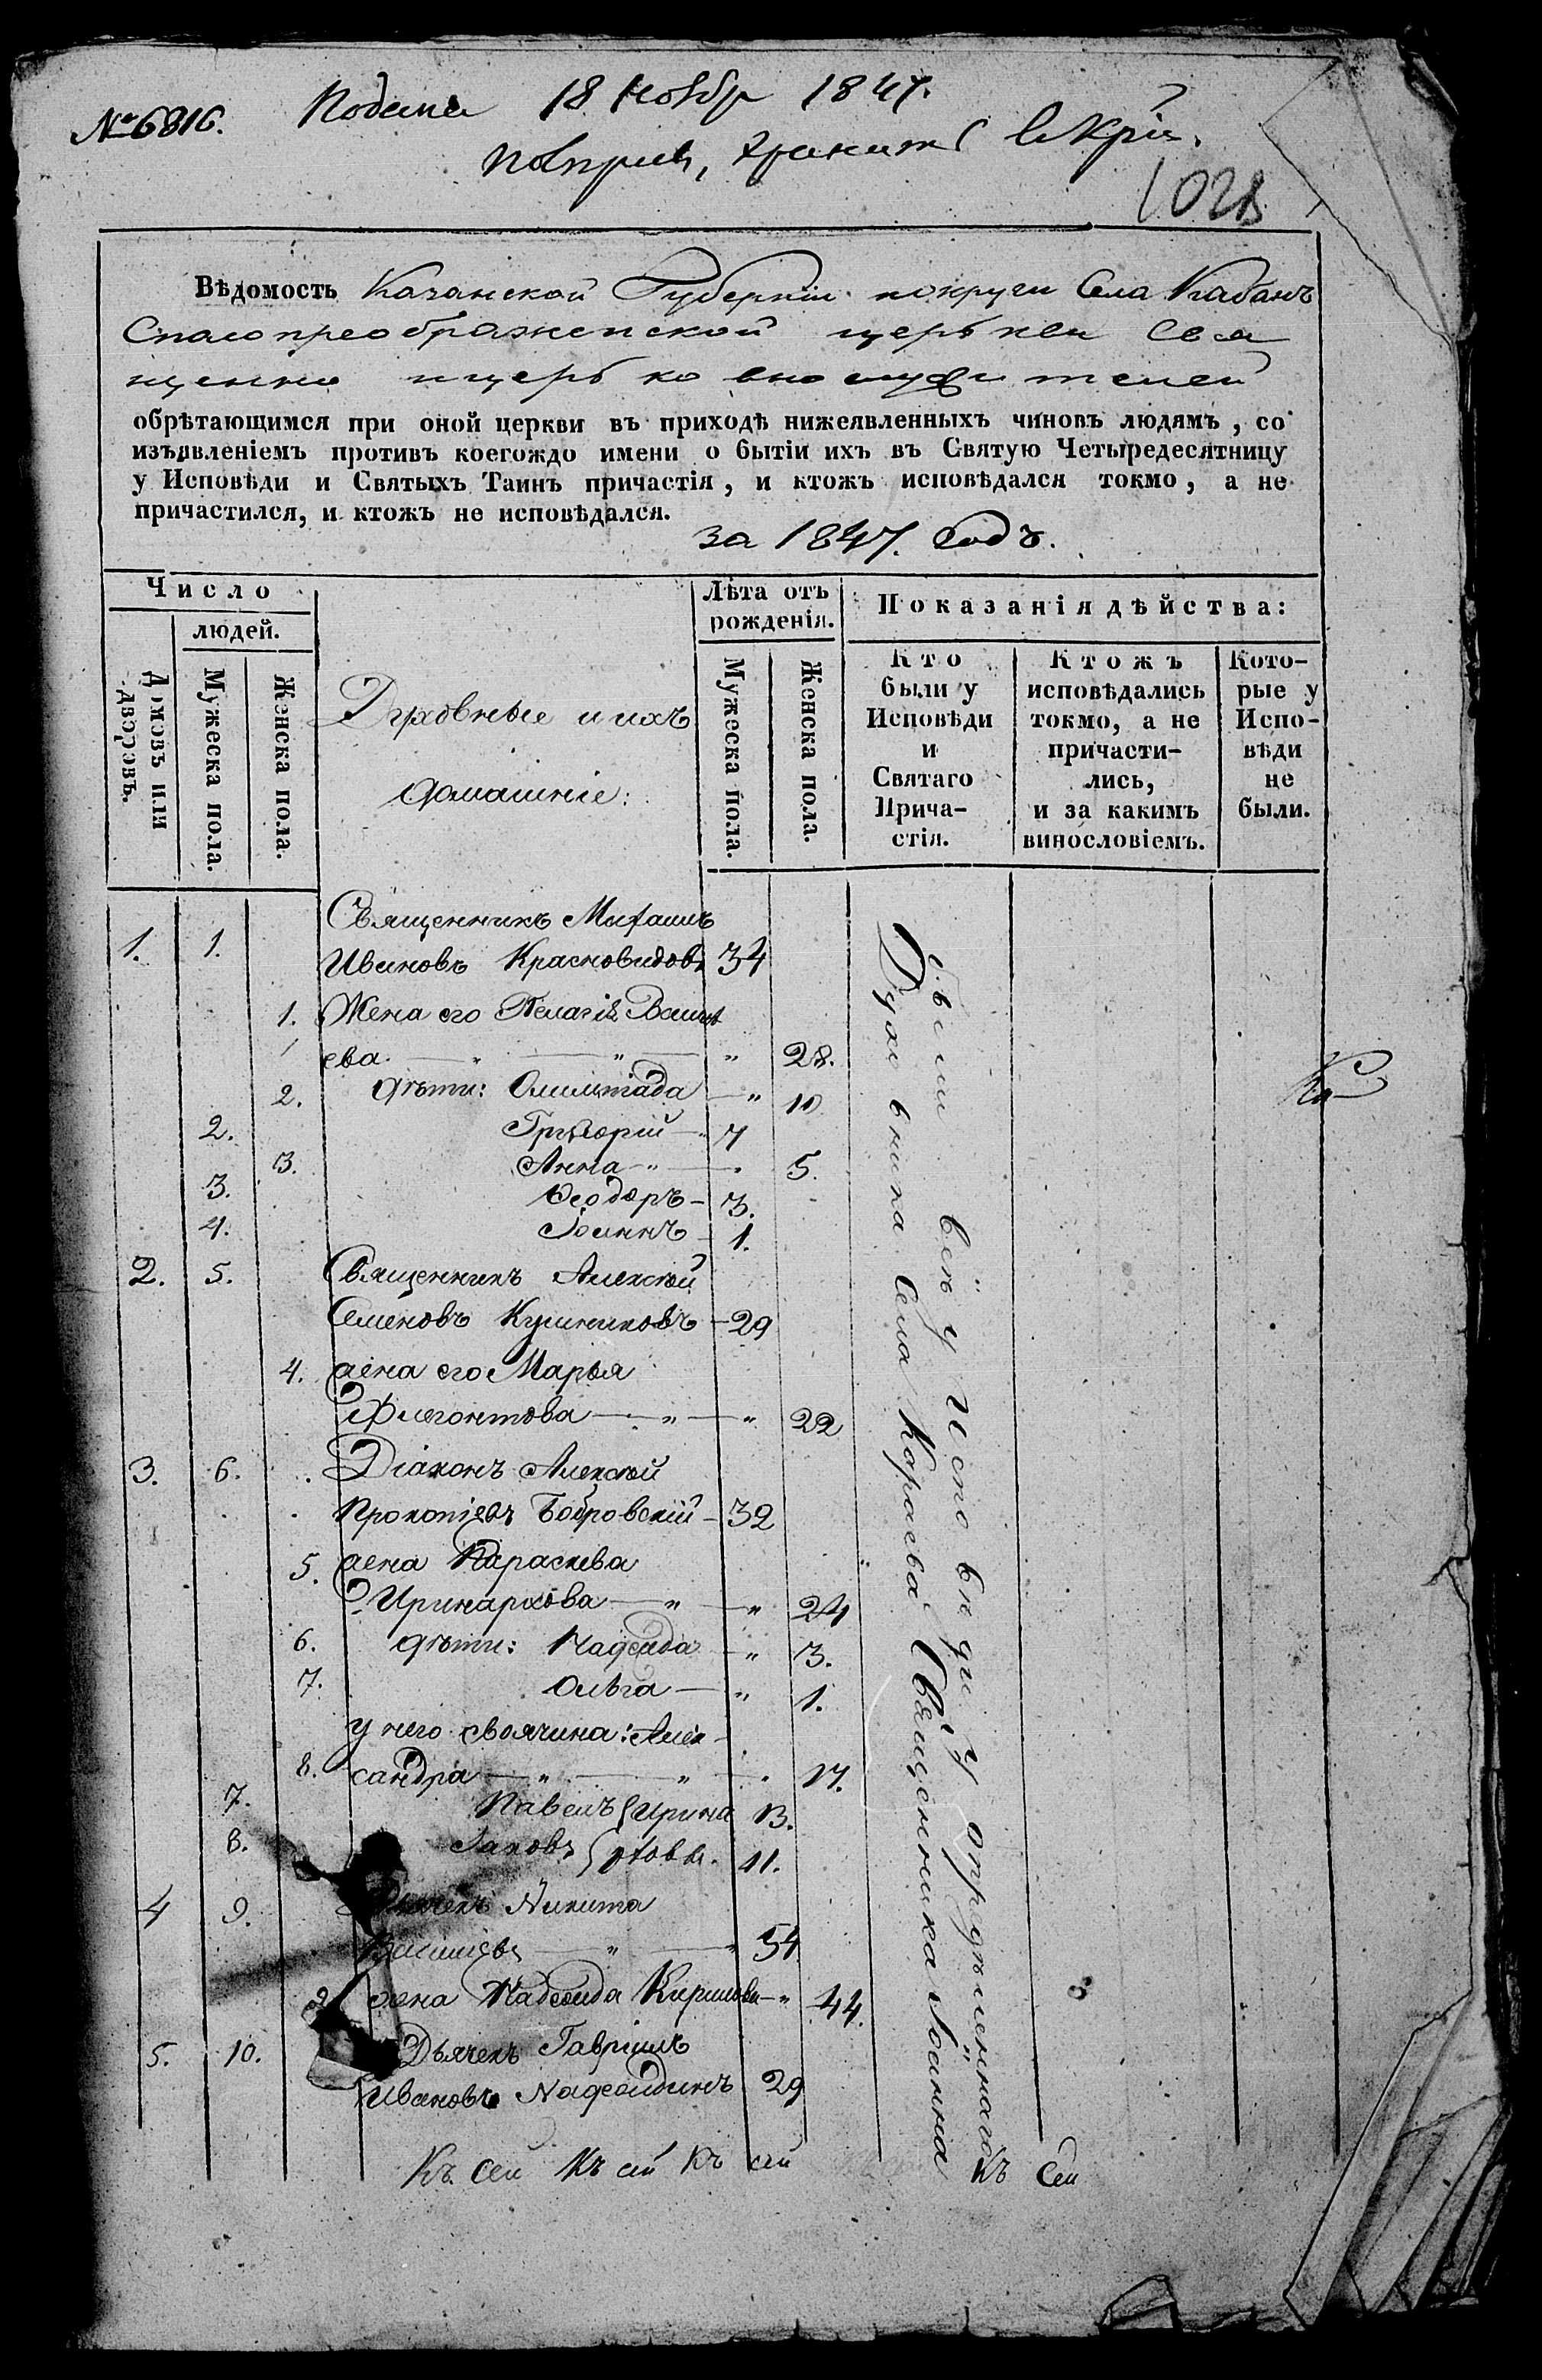 № 6816. Подана 18 Ноябр 1847.
1028
Вѣдомость Казанской Губерніи и округи Села Кабанъ
Спасопреображенской церькви Свя
щенно и церь ко вно служи телей
обрѣтающимся при оной церкви въ приходѣ нижеявленныхъ чиновъ людямъ, со
изъявленіемъ противъ коегождо имени о бытіи ихъ въ Святую Четыредесятницу
у Исповѣди и Святыхъ Таинъ причастія, и ктожъ исповѣдался токмо, а не
причастился, и ктожъ не исповѣдался.
за 1847. Годъ.
Число
людей.
Домовъ или дворовъ.
Мужеска пола.
Женска пола.
Духовные и ихъ
домашніе:
Лѣта отъ
рожденія.
Мужеска пола.
Женска пола.
Показанія дѣйства:
Кто
были у
Исповѣди
и
Святаго
Прича-
стія.
Ктожъ
исповѣдались
токмо, а не
причасти-
лись,
и за какимъ
винословіемъ.
Кото-
рые у
Испо-
вѣди
не
были.
Священникъ Михаилъ
1. 1. Ивановъ Красновидовъ 34
1. Жена его Пелагія Василь
ева " " " 28.
2. дѣти: Олимпіада " 10
2. Григорій 7
3. Анна " 5.
3. Ѳеодоръ 3.
4. Іоаннъ 1.
2. 5. Священникъ Алексѣй
Семеновъ Кушниковъ 29
4. жена его Марья
Флегонтова " " 22
3. 6. Діаконъ Алексѣй
Прокопіевъ Бобровскій 32
5. жена Параскева
Иринархова " " 24
6. дѣти: Надежда " 3.
7. Ольга " 1.
у него своячина: Алек-
8. сандра " " 17.
7. Павелъ Ирина 13.
8. Іаковъ рховы. 11.
4 9. Дьячекъ Никита
Васильевъ " " 54
9 жена Надежда Кирилова " 44.
5. 10. Дьячекъ Гавріилъ
Ивановъ Надеждинъ 29
были всѣ у Исповѣди у опредѣленнаго
Духовника Села Караева Священника Іоанна
Къ сей Къ сей Къ сей Къ Сей